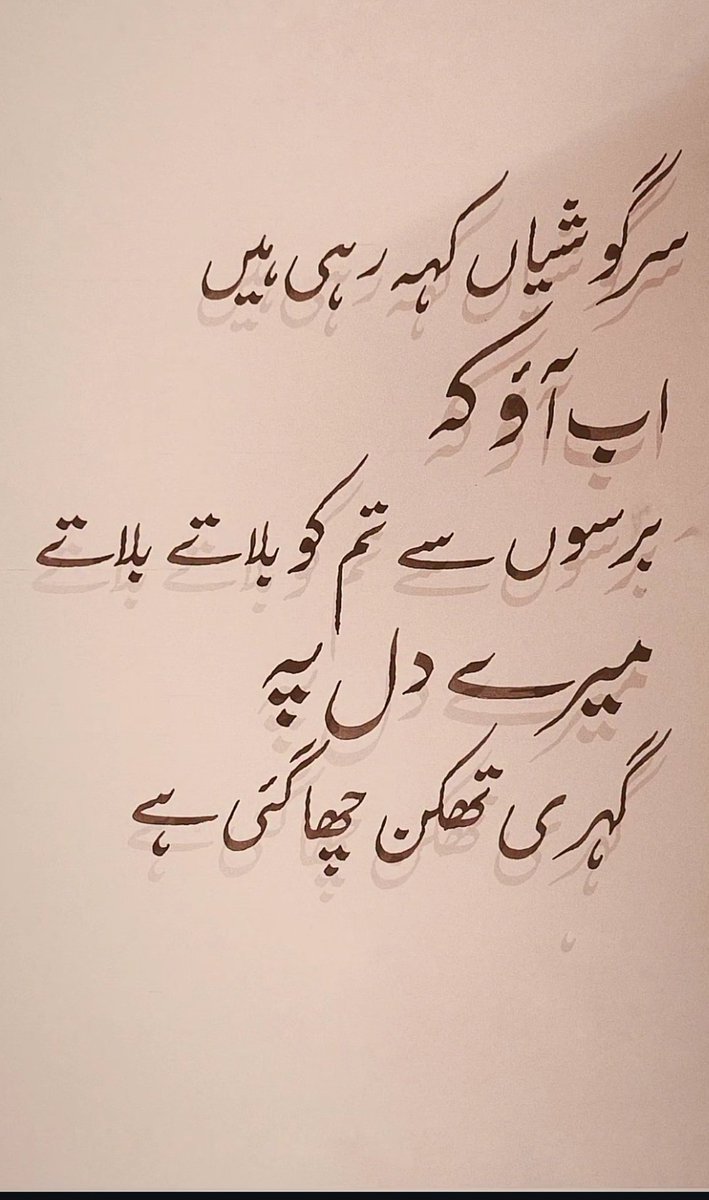 سرگوشیاں کہہ رہی ہیں
اب آؤ کہ
برسوں سے تم کو بلاتے بلاتے
میرے دل پہ
گہری تھکن چھا گئی ہے